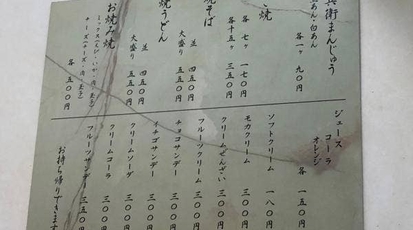 兵衛まんじゅう
白あん
各一ヶ 九〇円
焼
各七ヶ 一七〇円
各十五ヶ 三五〇円
焼そば
並 四五〇円
大盛り 五五〇円
焼うどん
並 四五〇円
大盛り 五五〇円
お好み焼
各 五五〇円
ジュース コーラ
オレンジ
各 一五〇円
ソフトクリーム 一八〇円
モカクリーム 三〇〇円
クリームぜんざい 三五〇円
フルーツクリーム 三〇〇円
チョコサンデー 三〇〇円
イチゴサンデー 三〇〇円
クリームソーダ 三〇〇円
クリームコーラ 三〇〇円
フルーツサンデー 三五〇円
お持ち帰りできます